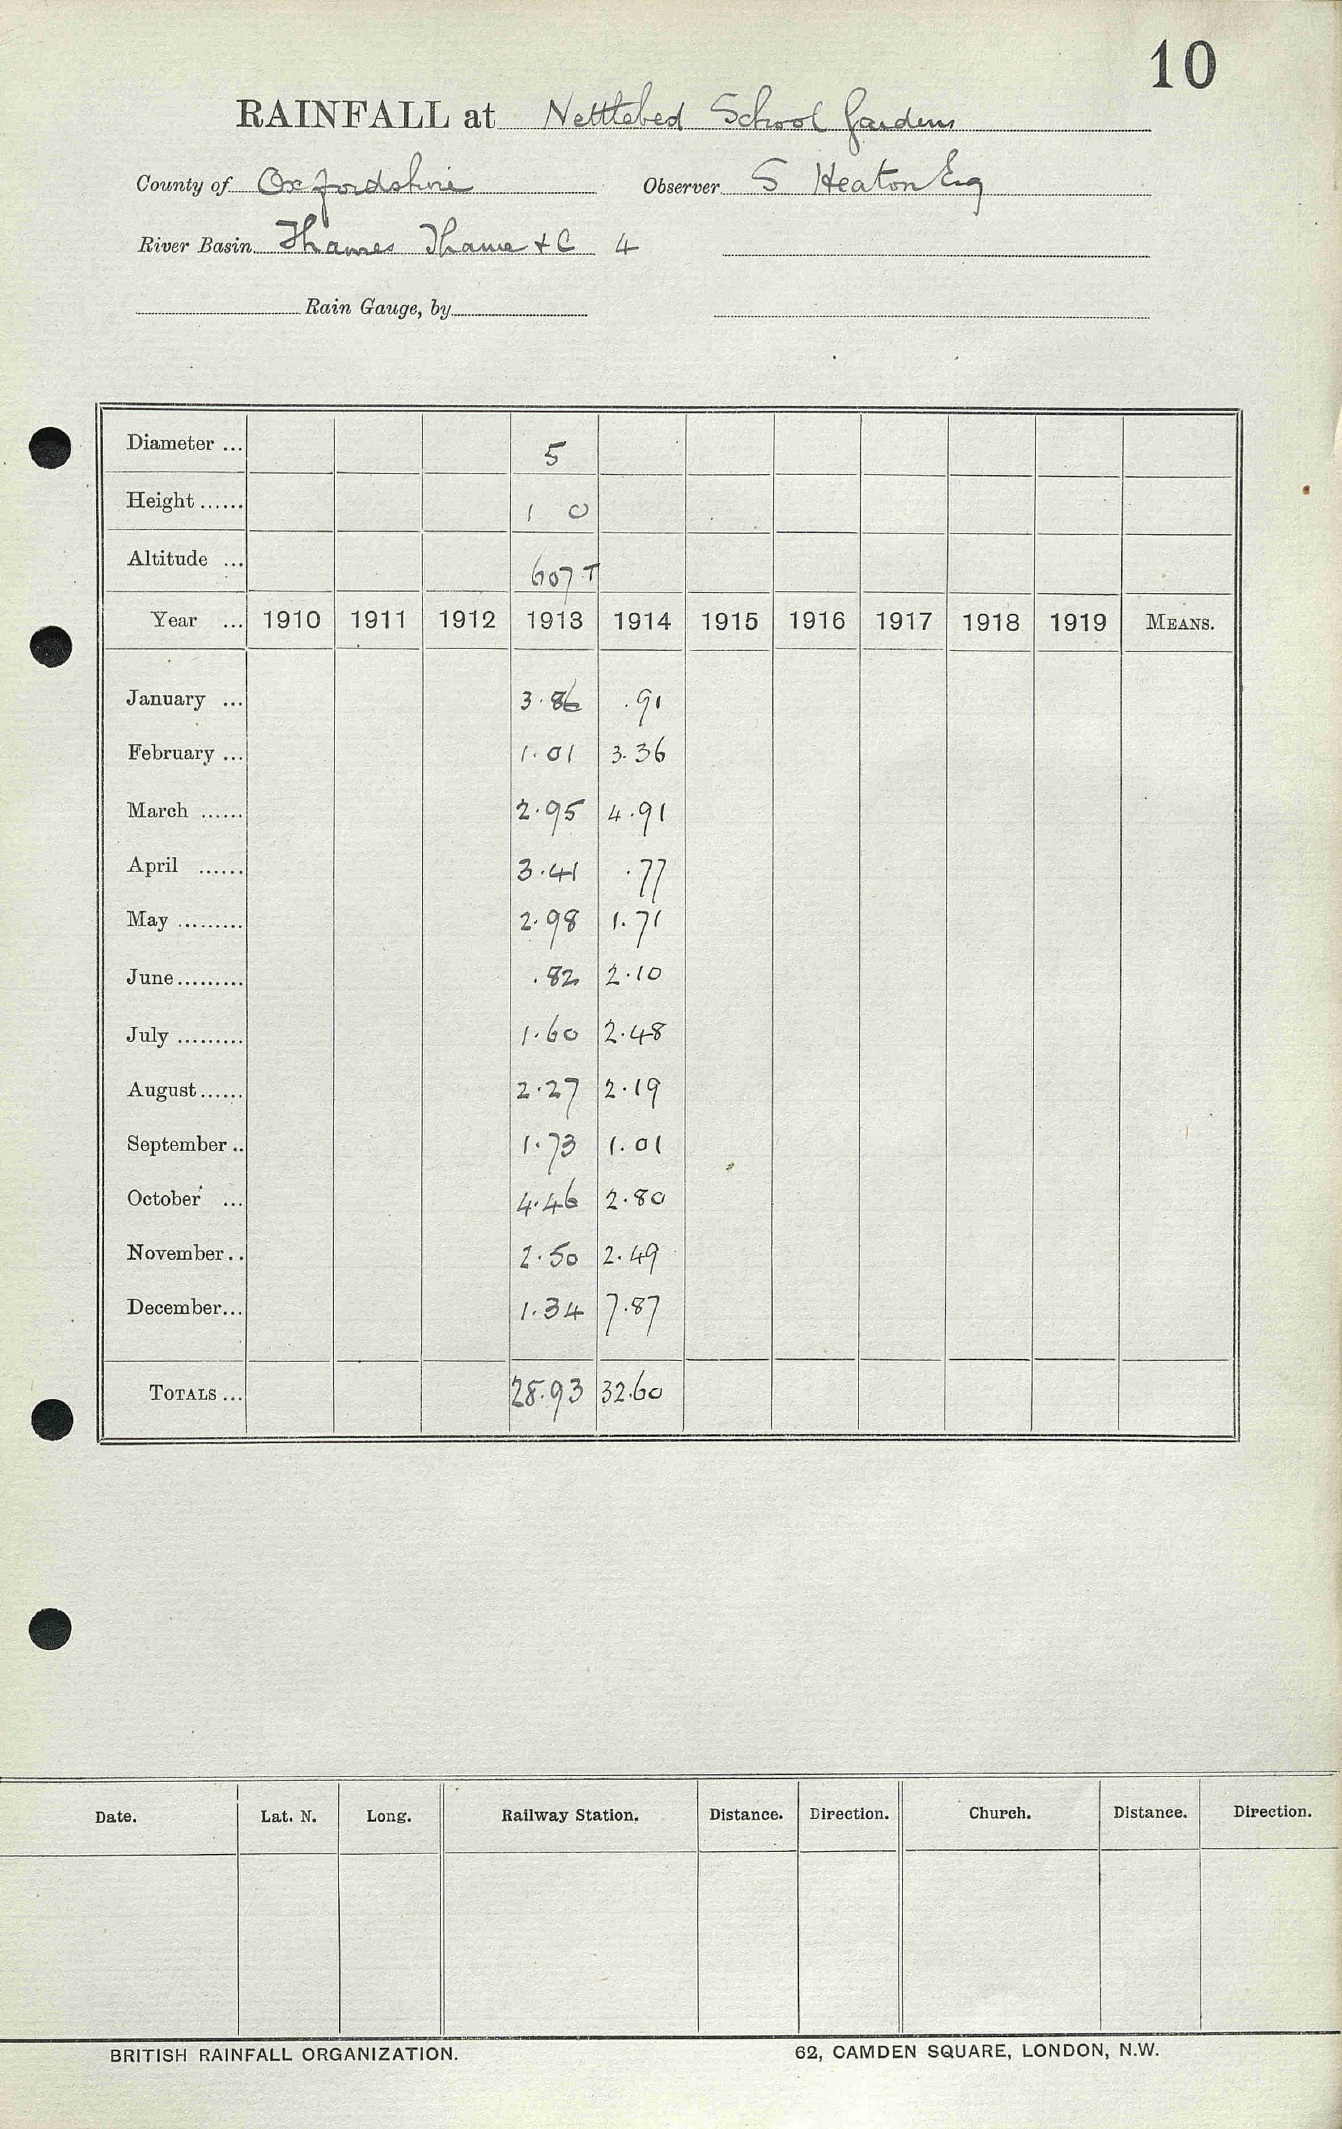 10
RAINFALL at Nettlebed School Gardens
County of Oxfordshire Observer S Heaton Esq
River Basin Thames Thame + C 4
Rain Gauge, by
Diameter ... 5
Height ...... 1 0
Altitude ... 607 T
Year ... 1910 1911 1912 1913 1914 1915 1916 1917 1918 1919 MEANS.
January ... 3.86 .91
February ... 1.01 3.36
March ...... 2.95 4.91
April ...... 3.41 .77
May ......... 2.98 1.71
June ......... .82 2.10
July ......... 1.60 2.48
August ...... 2.27 2.19
September .. 1.73 1.01
October ... 4.46 2.80
November .. 2.50 2.49
December ... 1.34 7.87
TOTALS ... 28.93 32.60
Date. Lat. N. Long. Railway Station. Distance. Direction. Church. Distance. Direction.
BRITISH RAINFALL ORGANIZATION. 62, CAMDEN SQUARE, LONDON, N.W.